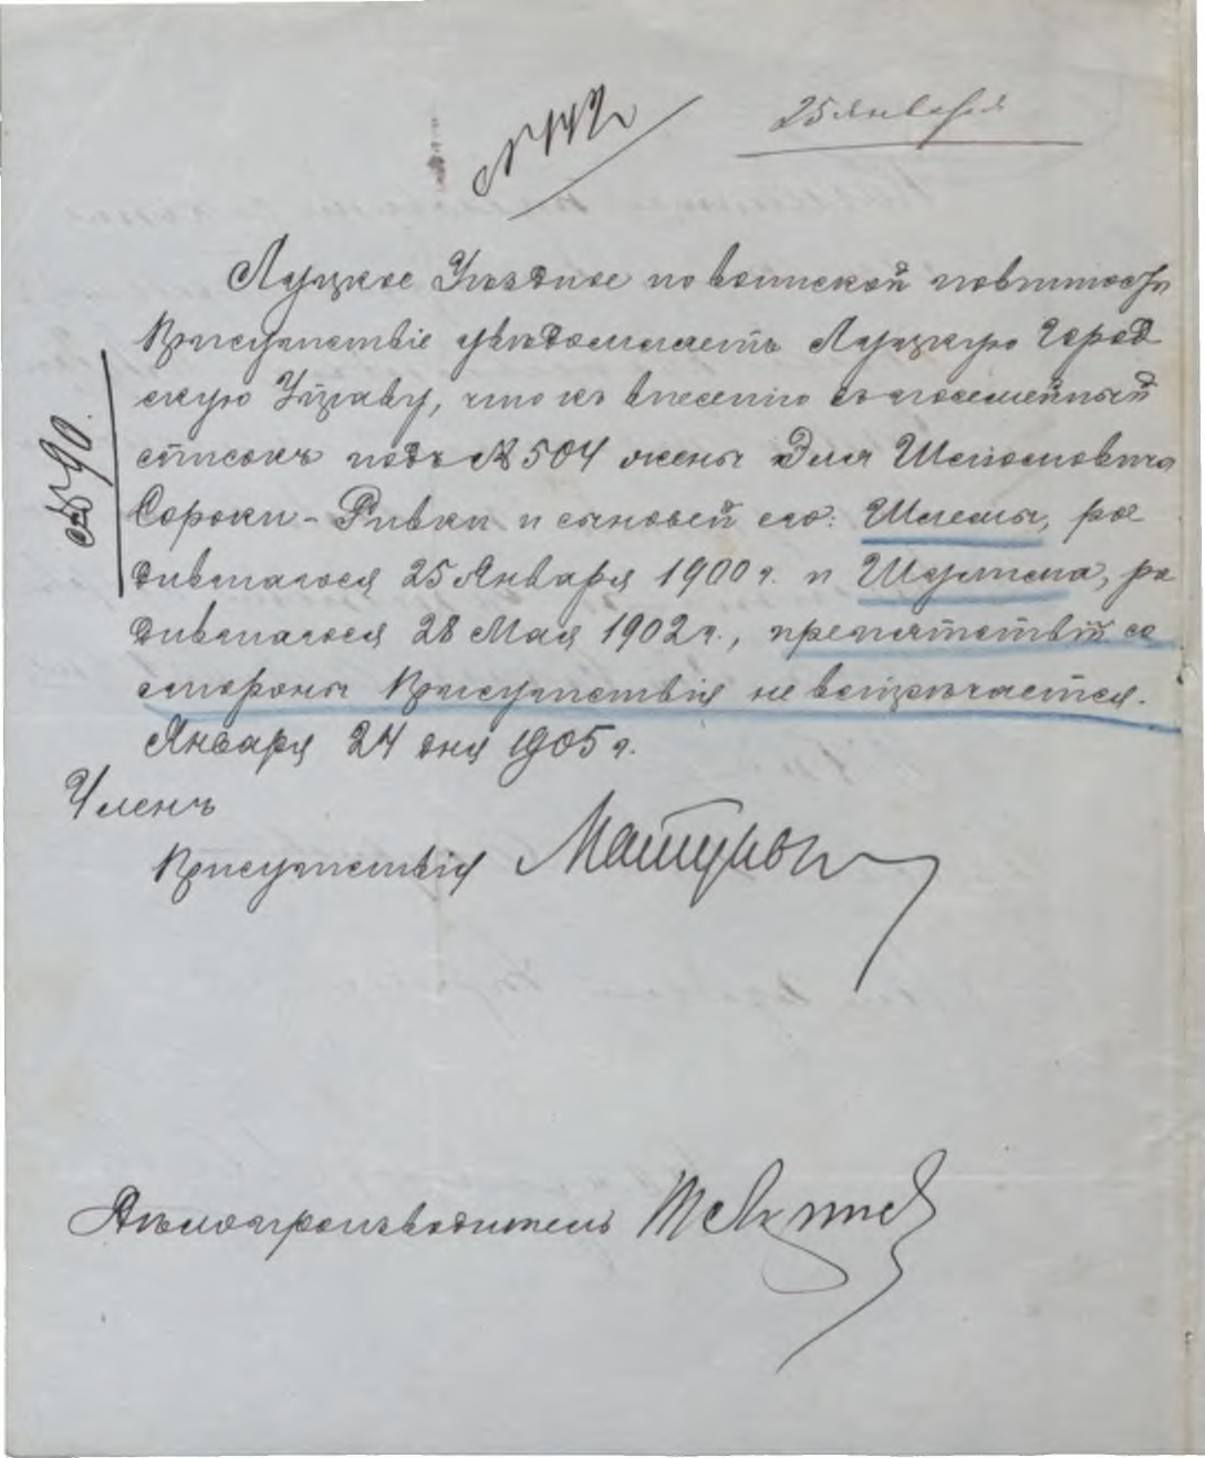 25 января
Луцкое Уѣздное по воинской повинности
Присутствіе увѣдомляетъ Луцкую Город
скую Управу, что къ внесенію въ посемейный
списокъ подъ № 504 жены Эля Шліомовича
Сороки - Ривки и сыновей его: Шлемы, ро
дившагося 25 Января 1900 г. и Шулима, ро
дившагося 28 Мая 1902 г., препятствій со
стороны Присутствія не встрѣчается.
№ 90.
Января 24 дня 1905 г.
Членъ
Присутствія
Дѣлопроизводитель